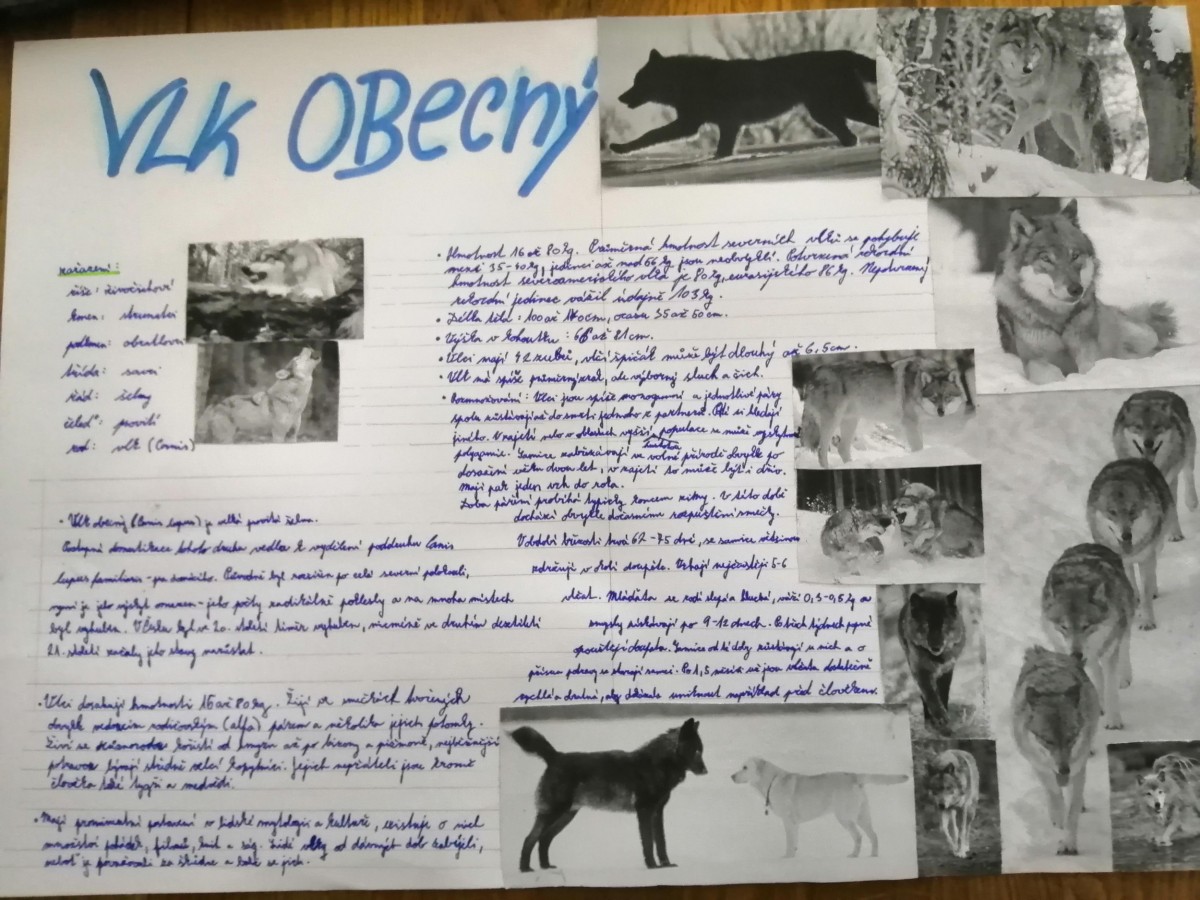 VLK OBECNÝ
zařazení:
říše: živočichové
kmen: strunatci
podkmen: obratlovci
třída: savci
řád: šelmy
čeleď: psovití
rod: vlk (Canis)
• Vlk obecný (Canis lupus) je velká psovitá šelma.
Postupná domestikace tohoto druhu vedla k vydělení poddruhu Canis
lupus familiaris - psa domácího. Původně byl rozšířen po celé severní polokouli,
nyní je jeho výskyt omezen - jeho počty radikálně poklesly a na mnoha místech
byl vyhuben. V Česku byl ve 20. století téměř vyhuben, nicméně ve druhém desetiletí
21. století začaly jeho stavy narůstat.
• Vlci dosahují hmotnosti 16 až 80 kg. Žijí ve smečkách tvořených
obvykle vedoucím rodičovským (alfa) párem a několika jejich potomky.
Živí se různorodou kořistí od hmyzu až po bizony a pižmoně, nejběžnější
potravou bývají středně velcí kopytníci. Jejich nepřáteli jsou kromě
člověka také tygři a medvědi.
• Mají prominentní postavení v lidské mytologii a kultuře, existuje o nich
množství pohádek, filmů, knih a ság. Lidé vlky od dávných dob zabíjeli,
neboť je považovali za škůdce a báli se jich.
• Hmotnost 16 až 80 kg. Průměrná hmotnost severních vlků se pohybuje
mezi 35-40 kg, jedinci až nad 66 kg jsou neobvyklí. Potvrzená rekordní
hmotnost severoamerického vlka je 80 kg, eurasijského 86 kg. Nepotvrzený
rekordní jedinec vážil údajně 103 kg.
• Délka těla: 100 až 140cm, ocasu 35 až 50 cm.
• Výška v kohoutku: 66 až 81cm.
• Vlci mají 42 zubů, vlčí špičák může být dlouhý až 6,5cm.
• Vlk má spíše průměrný zrak, ale výborný sluch a čich.
• Rozmnožování: Vlci jsou spíše monogamní a jednotlivé páry
spolu zůstávají až do smrti jednoho z partnerů. Poté si hledají
jiného. V zajetí nebo v oblastech vyšší hustota populace se může vyskytnout
polygamie. Samice zabřezávají ve volné přírodě obvykle po
dosažení věku dvou let, v zajetí to může být i dříve.
Mají pak jeden vrh do roka.
Doba páření probíhá typicky koncem zimy. V této době
dochází obvykle dočasnému rozpuštění smečky.
V období březosti trvá 62-75 dní, se samice většinou
zdržují v okolí doupěte. Vrhají nejčastěji 5-6
vlčat. Mláďata se rodí slepá a hluchá, váží 0,3-0,5 kg a
smysly získávají po 9-12 dnech. Po třech týdnech poprvé
opouštějí doupata. Samice od té doby zůstávají u nich a o
přísun potravy se starají samci. Po 1,5 měsíci už jsou vlčata dostatečně
rychlá a zdatná, aby dokázala uniknout například před člověkem.